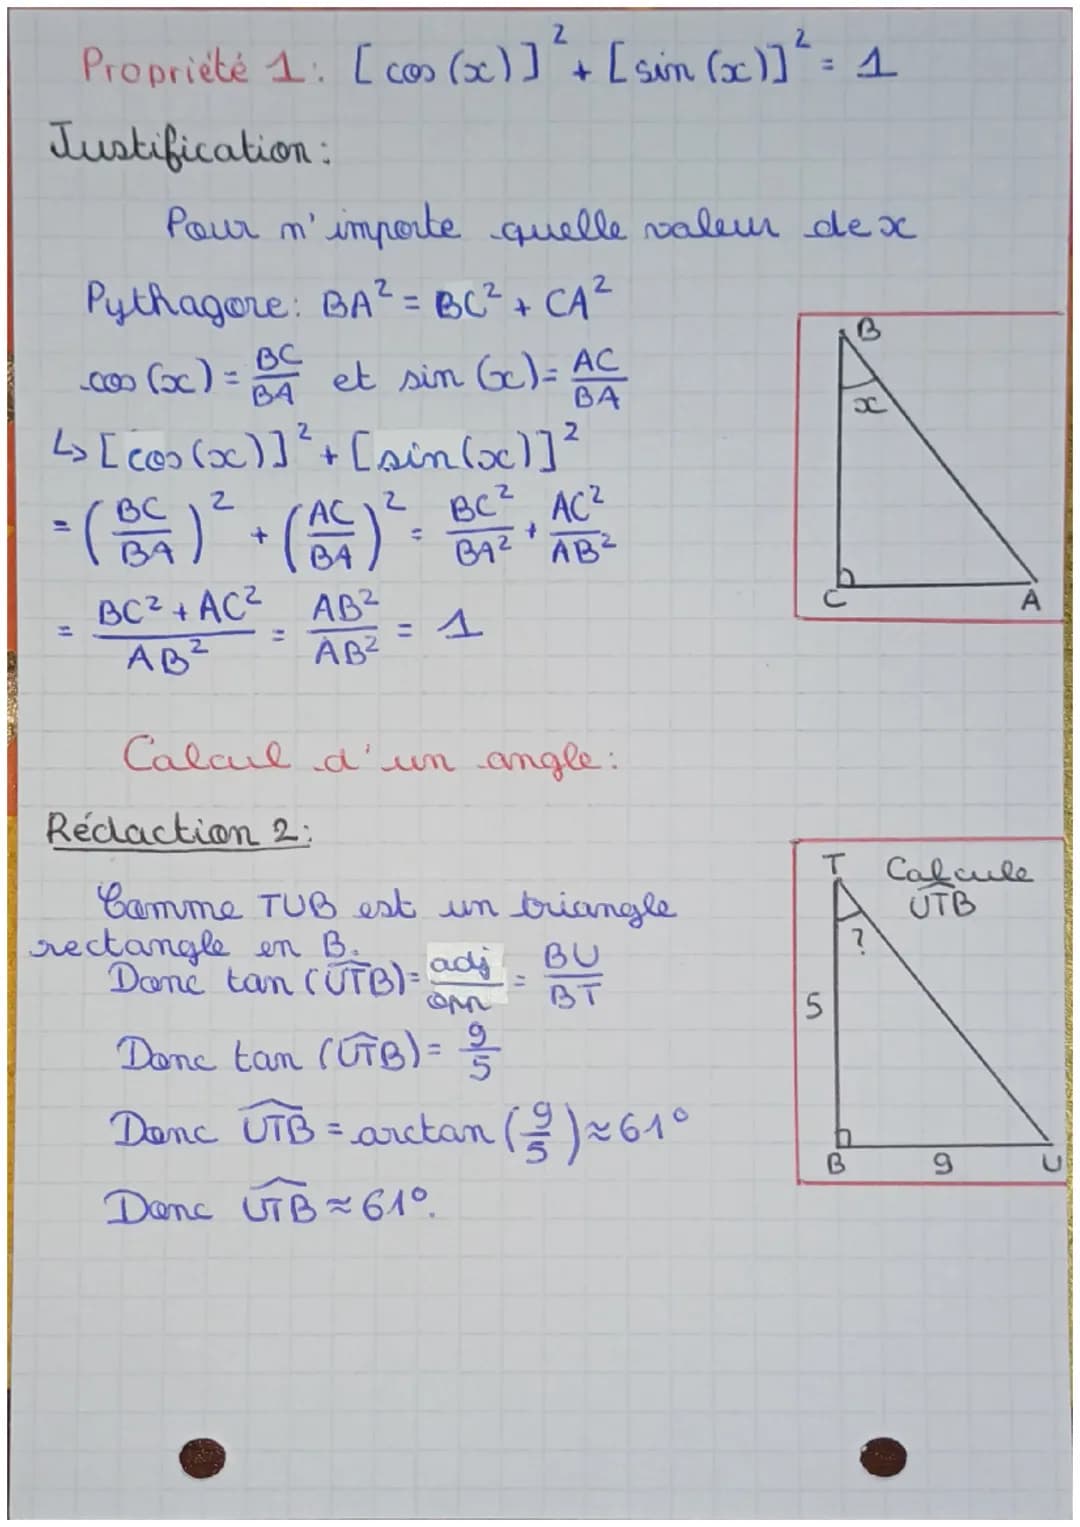 Propriété 1: [cos(x)]² + [sin(x)]² = 1
Justification:
Pour n'importe quelle valeur de x
Pythagore: BA² = BC² + CA²
cos(x) = BC/BA et sin(x) = AC/BA
↳ [cos(x)]² + [sin(x)]²
= (BC/BA)² + (AC/BA)² = BC²/BA² + AC²/AB²
= (BC² + AC²)/AB² = AB²/AB² = 1
B
x
C
A
Calcul d'un angle:
Rédaction 2:
Comme TUB est un triangle
rectangle en B.
Donc tan(UTB) = adj/opp = BU/BT
Donc tan(UTB) = 9/5
Donc UTB = arctan(9/5) ≈ 61°
Donc UTB ≈ 61°.
T Calcule
UTB
?
5
B 9 U